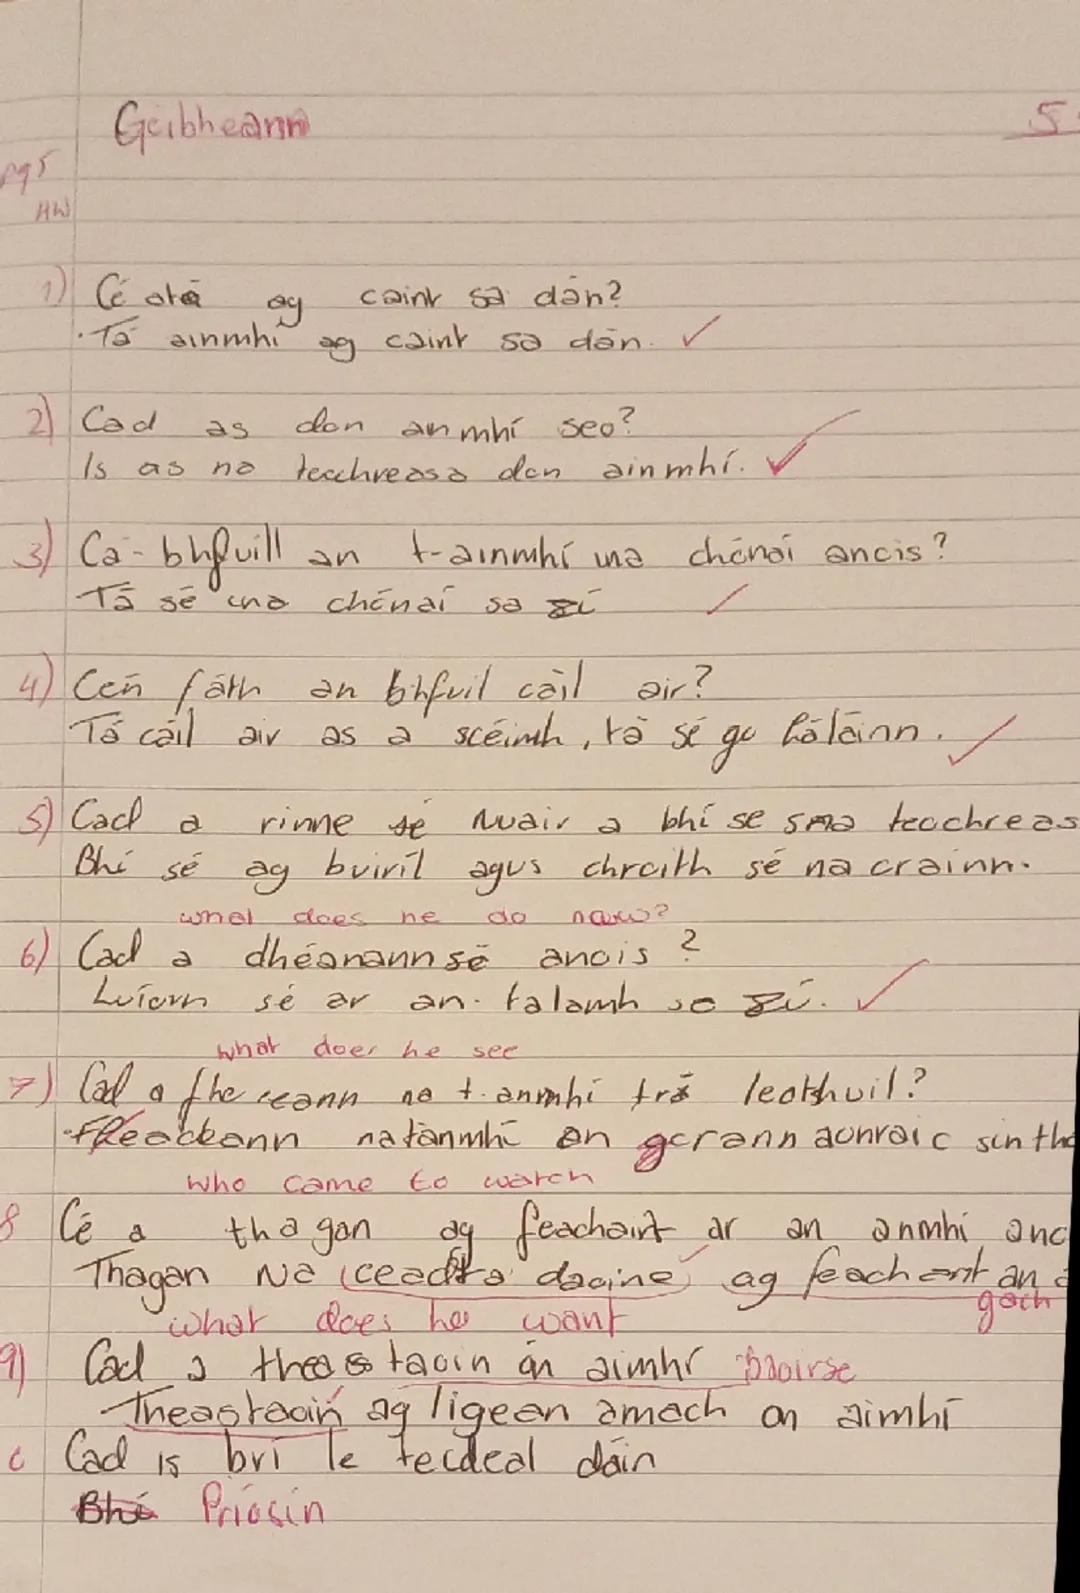 Geibheann
5
pg5
HW
1) Cé atá ag caint sa dán?
· Tá ainmhí ag caint sa dán. ✓
2) Cad as don anmhí seo?
Is as na teachreasa don ainmhí. ✓
3) Cá-bhfuill an t-ainmhí ina chónaí ancis?
Tá sé ina chónaí sa zú ✓
4) Cén fáth an bhfuil cáil air?
Tá cáil air as a scéimh, tá sé go háláinn. ✓
5) Cad a rinne sé Nuair a bhí se sna teachreas
Bhí sé ag buiríl agus chraith sé na crainn.
what does he do now?
6) Cad a dhéanann sé anois?
Luíonn sé ar an talamh sa zú. ✓
what does he see
7) Cad a fheceann na t-anmhí trá leathshuil?
Feackann natanmhí an gcrann aonraic sin tha
who came to watch
8 Cé a thagan ag feachaint ar an anmhi anc
Thagan Na céadta daoine ag feachant an a
gach
what does he want
9) Cad a theastaoin an aimhí
Theastaoin ag ligean amach an aimhí
Cad is brí le tecdeal dáin
Bhí Príosín